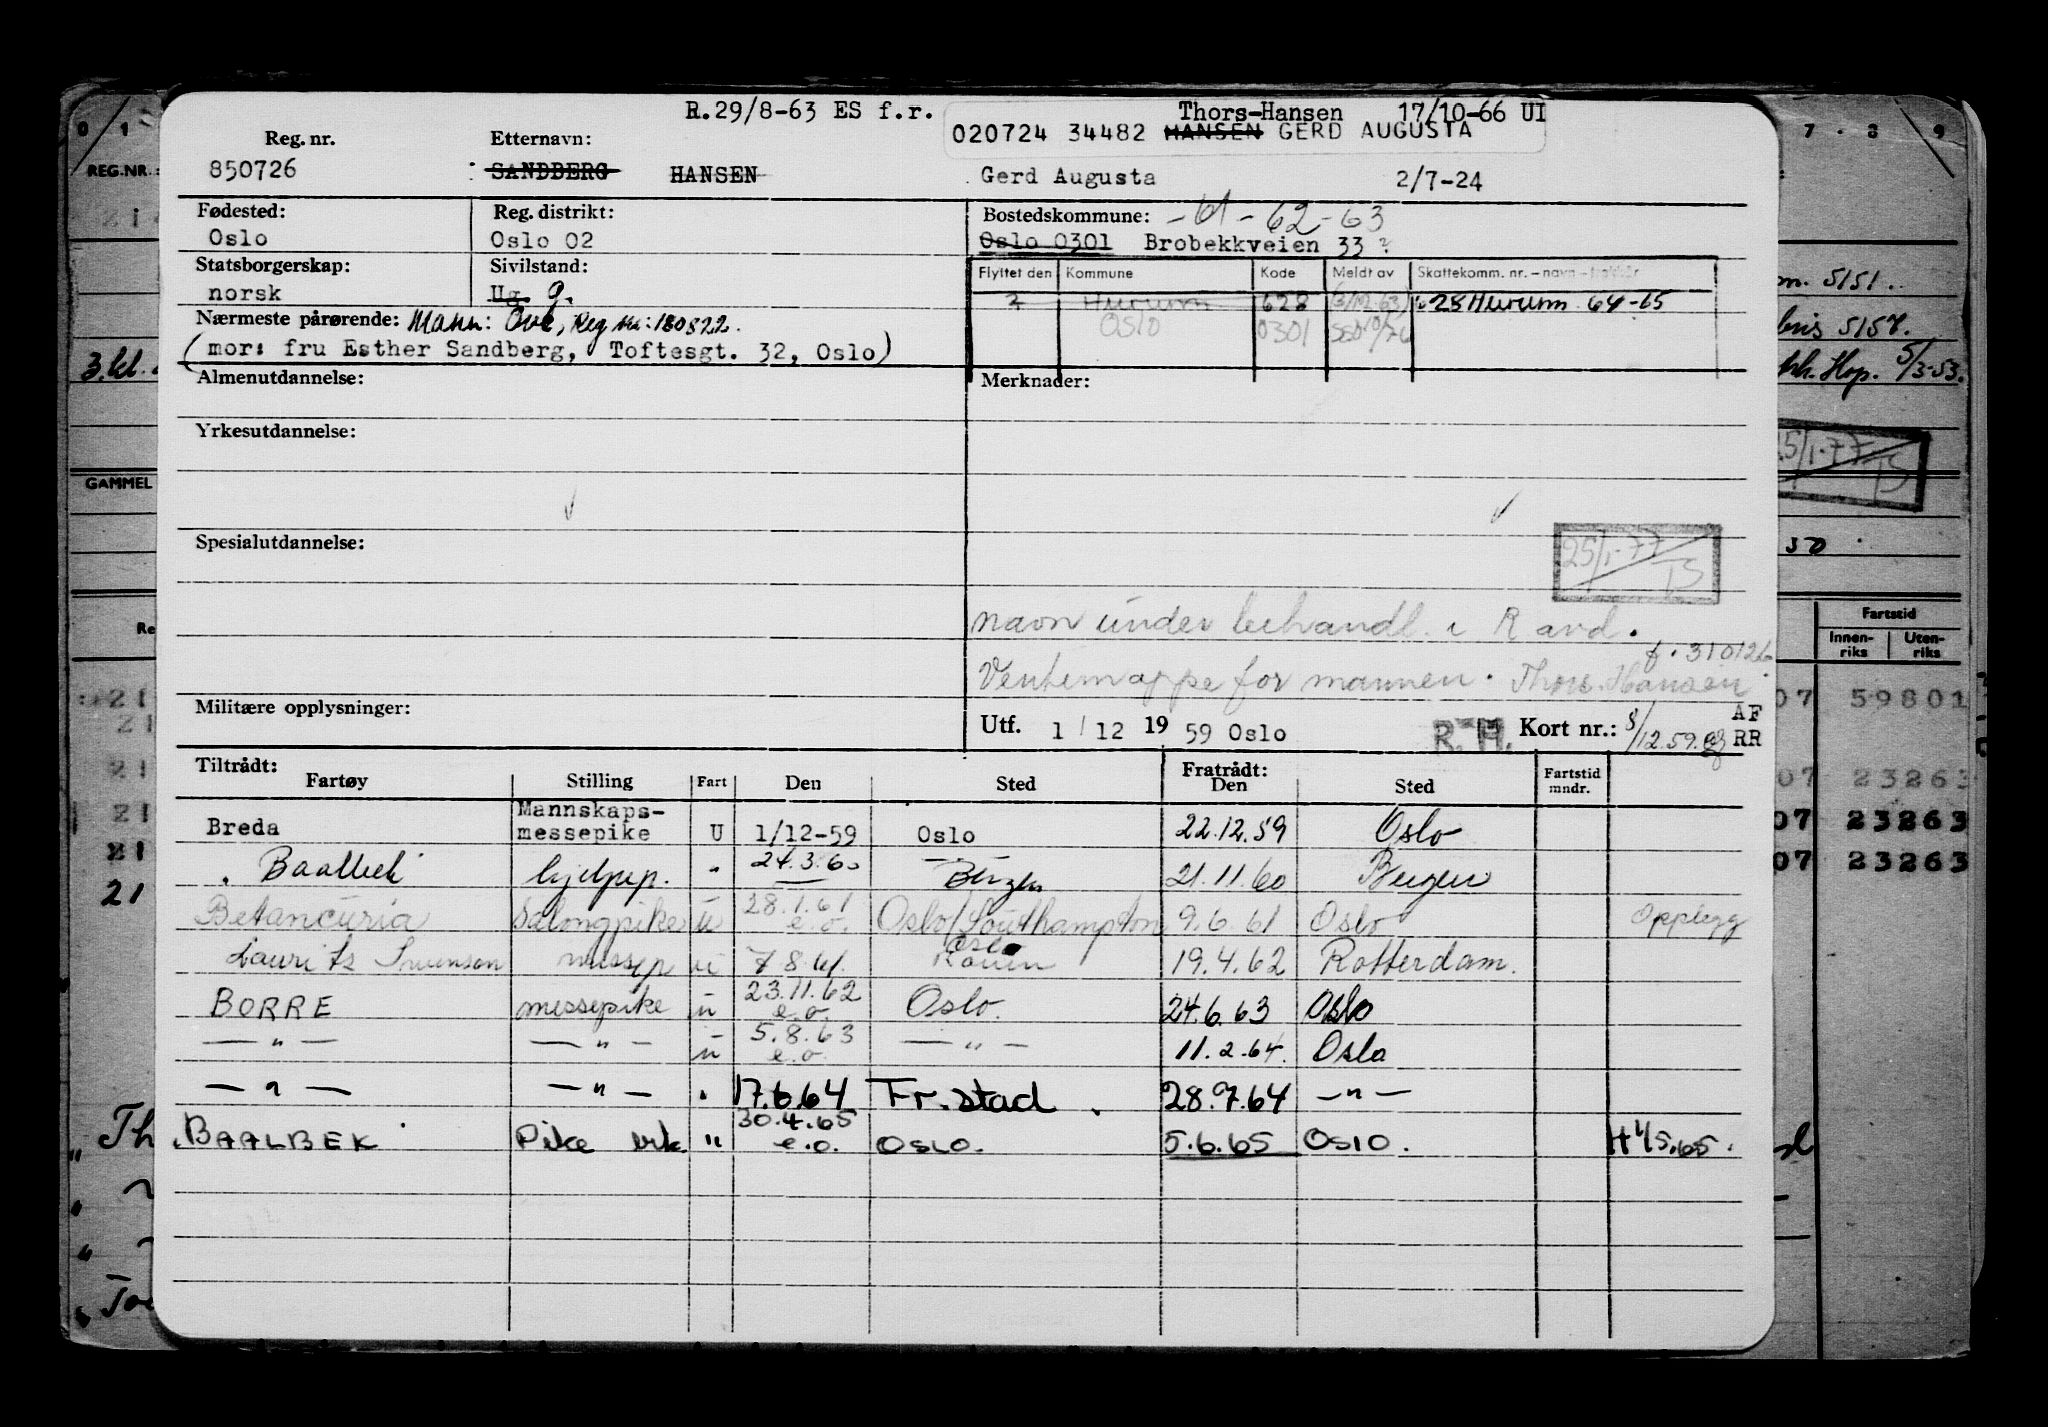 R.29/8-63 ES f.r. Thors-Hansen 17/10-66 UI
020724 34482 HANSEN GERD AUGUSTA
Reg. nr. Etternavn:
850726 SANDBERG HANSEN Gerd Augusta 2/7-24
Fødested: Reg. distrikt: Bostedskommune: -61-62-63
Oslo Oslo 02 Oslo 0301 Brobekkveien 33
Statsborgerskap: Sivilstand: Flyttet den Kommune Kode Meldt av Skattekomm. nr. - navn -
norsk Ug. g. Hurum 628 628 Hurum 64-65
Nærmeste pårørende: Mann: Ove, Reg nr: 180822. Oslo 0301
(mor: fru Esther Sandberg, Toftesgt. 32, Oslo)
Almenutdannelse: Merknader:
Yrkesutdannelse:
Spesialutdannelse: 25/1-77 TS
navn under behandl. i R avd.
f. 310126
Ventemappe for mannen. Thors-Hansen
Militære opplysninger: Utf. 1/12 19 59 Oslo R. H. Kort nr.: 8/12.59. AF RR
Tiltrådt: Fratrådt:
Fartøy Stilling Fart Den Sted Den Sted Fartstid mndr.
Breda Mannskaps-messepike U 1/12-59 Oslo 22.12.59 Oslo
Baalbek hjelpep. " 24.3.60 Bergen 21.11.60 Bergen
Betancuria Salongpike u 28.1.61 e.o. Oslo/Southampton 9.6.61 Oslo Opplegg
Laurits Swenson messep u 7.8.61. Oslo Rouen 19.4.62 Rotterdam.
BORRE messepike u 23.11.62 e.o. Oslo. 24.6.63 Oslo
— " — — " — u 5.8.63 e.o. — " — 11.2.64. Oslo
— " — — " — " 17.6.64 Fr.stad 28.9.64 — " —
BAALBEK Pike vik. " 30.4.65 e.o. OSLO. 5.6.65 OSLO. H 1/5.65.
REG.NR.:
3.kl.
GAMMEL
21
7 . 8 9
5151.
5157.
Hop. 5/3-53.
25/1-77 TS
50
Fartstid
Innen-riks Uten-riks
07 59801
07 23263
07 23263
07 23263